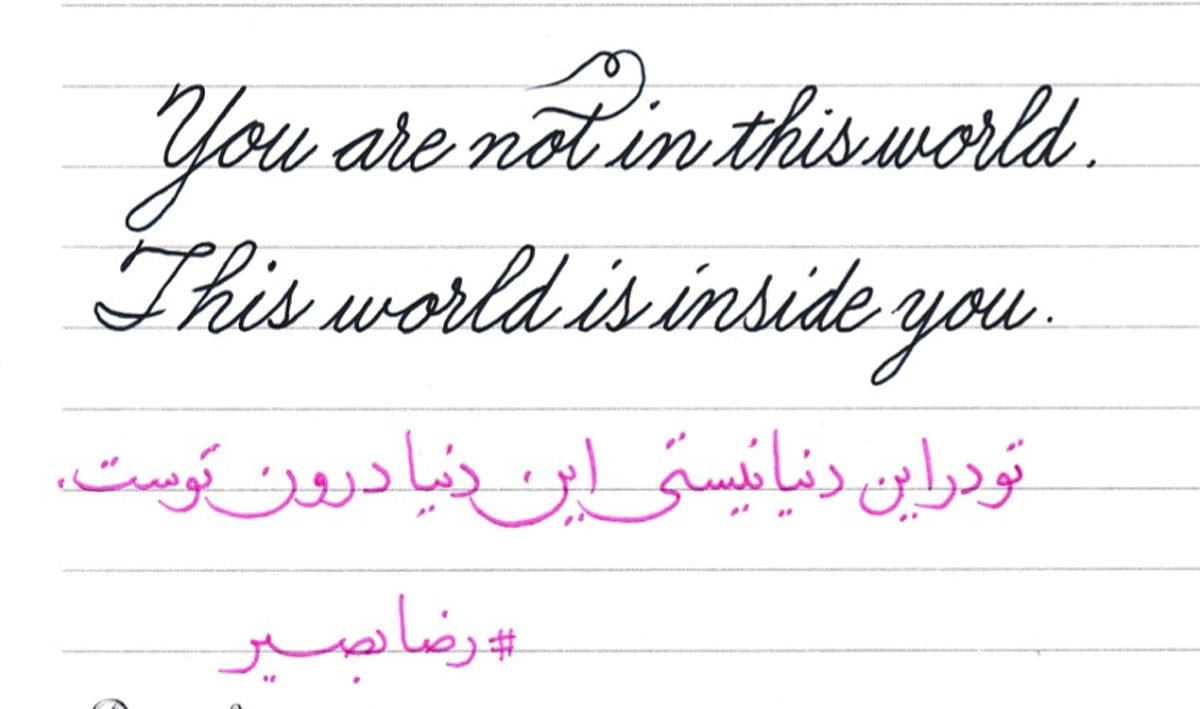 You are not in this world.
This world is inside you.
تو در این دنیا نیستی این دنیا درون توست.
#رضا بصیر